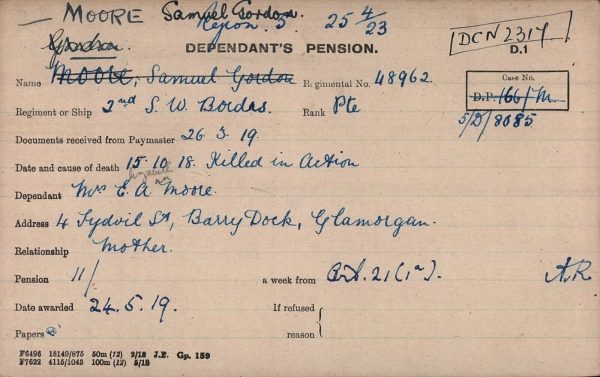 — MOORE Samuel Gordon.
Region 5. 25 4/23
DCN 2317
D.1
Gordon.
DEPENDANT'S PENSION.
Name Moore, Samuel Gordon Regimental No. 48962
Case No.
D.P. 166/M.
5/D/8085
Regiment or Ship 2nd S. W. Bordas. Rank Pte
Documents received from Paymaster 26.3.19.
Date and cause of death 15.10.18. Killed in Action
Elizabeth Ann
Dependant Mrs E. A. Moore.
Address 4 Tydvil St, Barry Dock, Glamorgan.
Relationship Mother.
Pension 11/ a week from Art. 21 (1a). A.R.
Date awarded 24.5.19. If refused
Papers reason
F6496 18149/875 50m (12) 2/18 J.P. Gp. 159
F7622 4115/1045 100m (12) 5/18